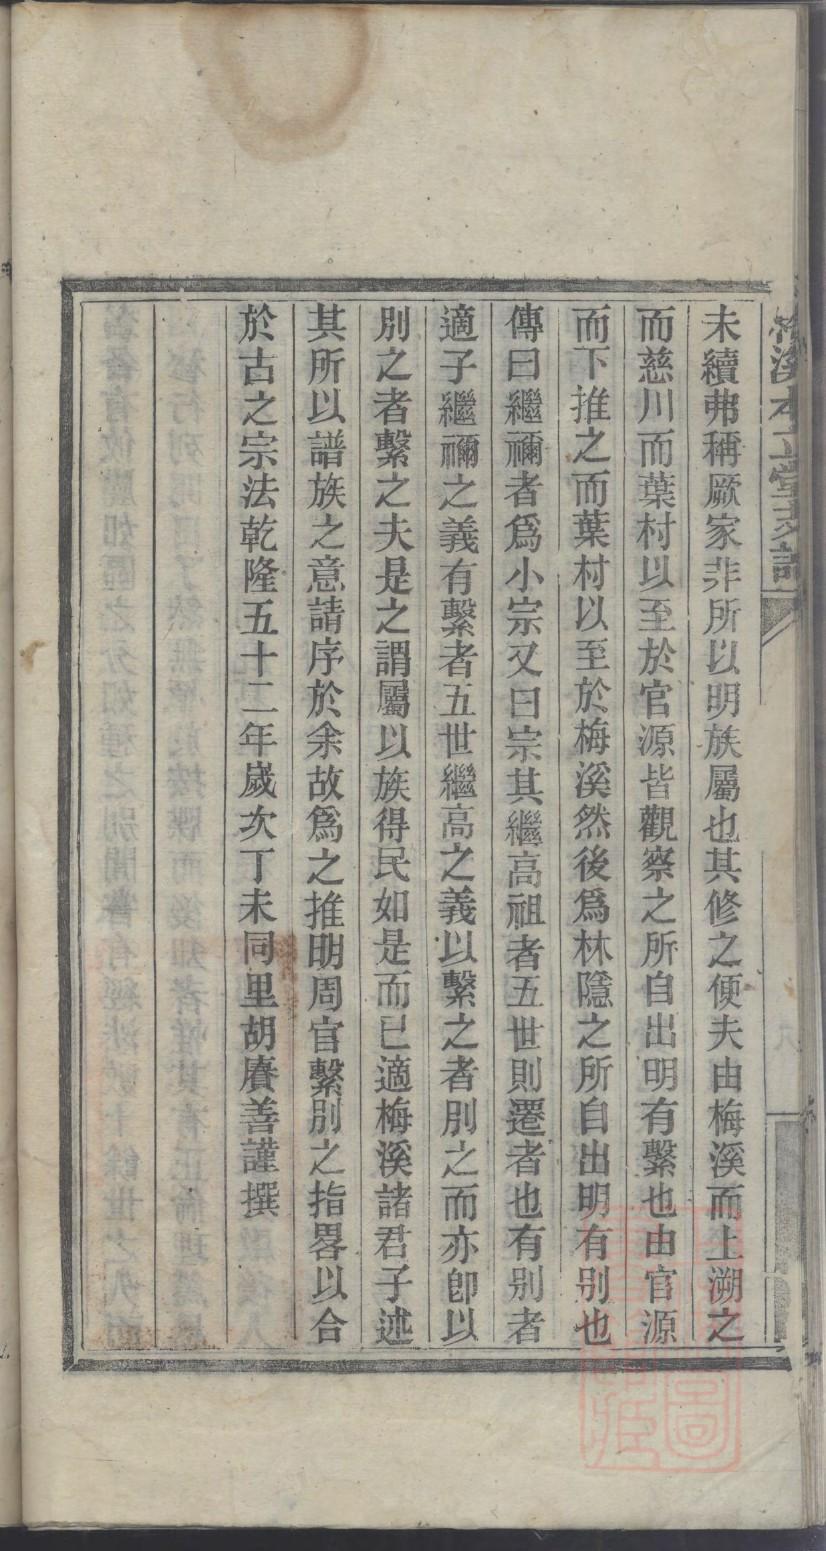 梅溪本立堂支譜
未續弗稱厥家非所以明族屬也其修之便夫由梅溪而上溯之
而慈川而葉村以至於官源皆觀察之所自出明有繫也由官源
而下推之而葉村以至於梅溪然後爲林隱之所自出明有别也
傳曰繼禰者爲小宗又曰宗其繼高祖者五世則遷者也有别者
適子繼禰之義有繫者五世繼高之義以繫之者別之而亦卽以
別之者繫之夫是之謂屬以族得民如是而已適梅溪諸君子述
其所以譜族之意請序於余故爲之推明周官繫別之指畧以合
於古之宗法乾隆五十二年歲次丁未同里胡賡善謹撰